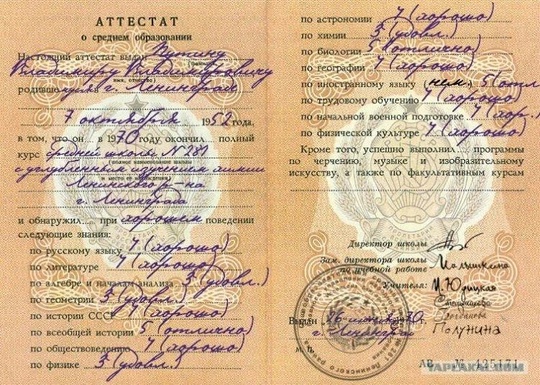 АТТЕСТАТ
о среднем образовании
Настоящий аттестат выдан Путину
Владимиру Владимировичу
имя, отчество
родившемуся г. Ленинград
7 октября 1952 года,
в том, что он в 1970 году окончил полный
курс средней школы № 281
с углубленным изучением химии
Ленинского р-на
г. Ленинграда
и обнаружил при хорошем поведении
следующие знания:
по русскому языку 4 (хорошо)
по литературе 4 (хорошо)
по алгебре и началам анализа 3 (удовл.)
по геометрии 3 (удовл.)
по истории СССР 4 (хорошо)
по всеобщей истории 5 (отлично)
по обществоведению 4 (хорошо)
по физике 3 (удовл.)
по астрономии 4 (хорошо)
по химии 3 (удовл.)
по биологии 5 (отлично)
по географии 4 (хорошо)
по иностранному языку (нем.) 5 (отл
по трудовому обучению 4 (хорошо)
по начальной военной подготовке 4 (хор.)
по физической культуре 4 (хорошо)
Кроме того, успешно выполнил программы
по черчению, музыке и изобразительному
искусству, а также по факультативным курсам
Директор школы
Зам. директора школы
по учебной работе
Учителя:
Богданова
Полунина
Выдан 26 1970 г.
г. Ленинград
№ 425171
YAPLAKAL.COM